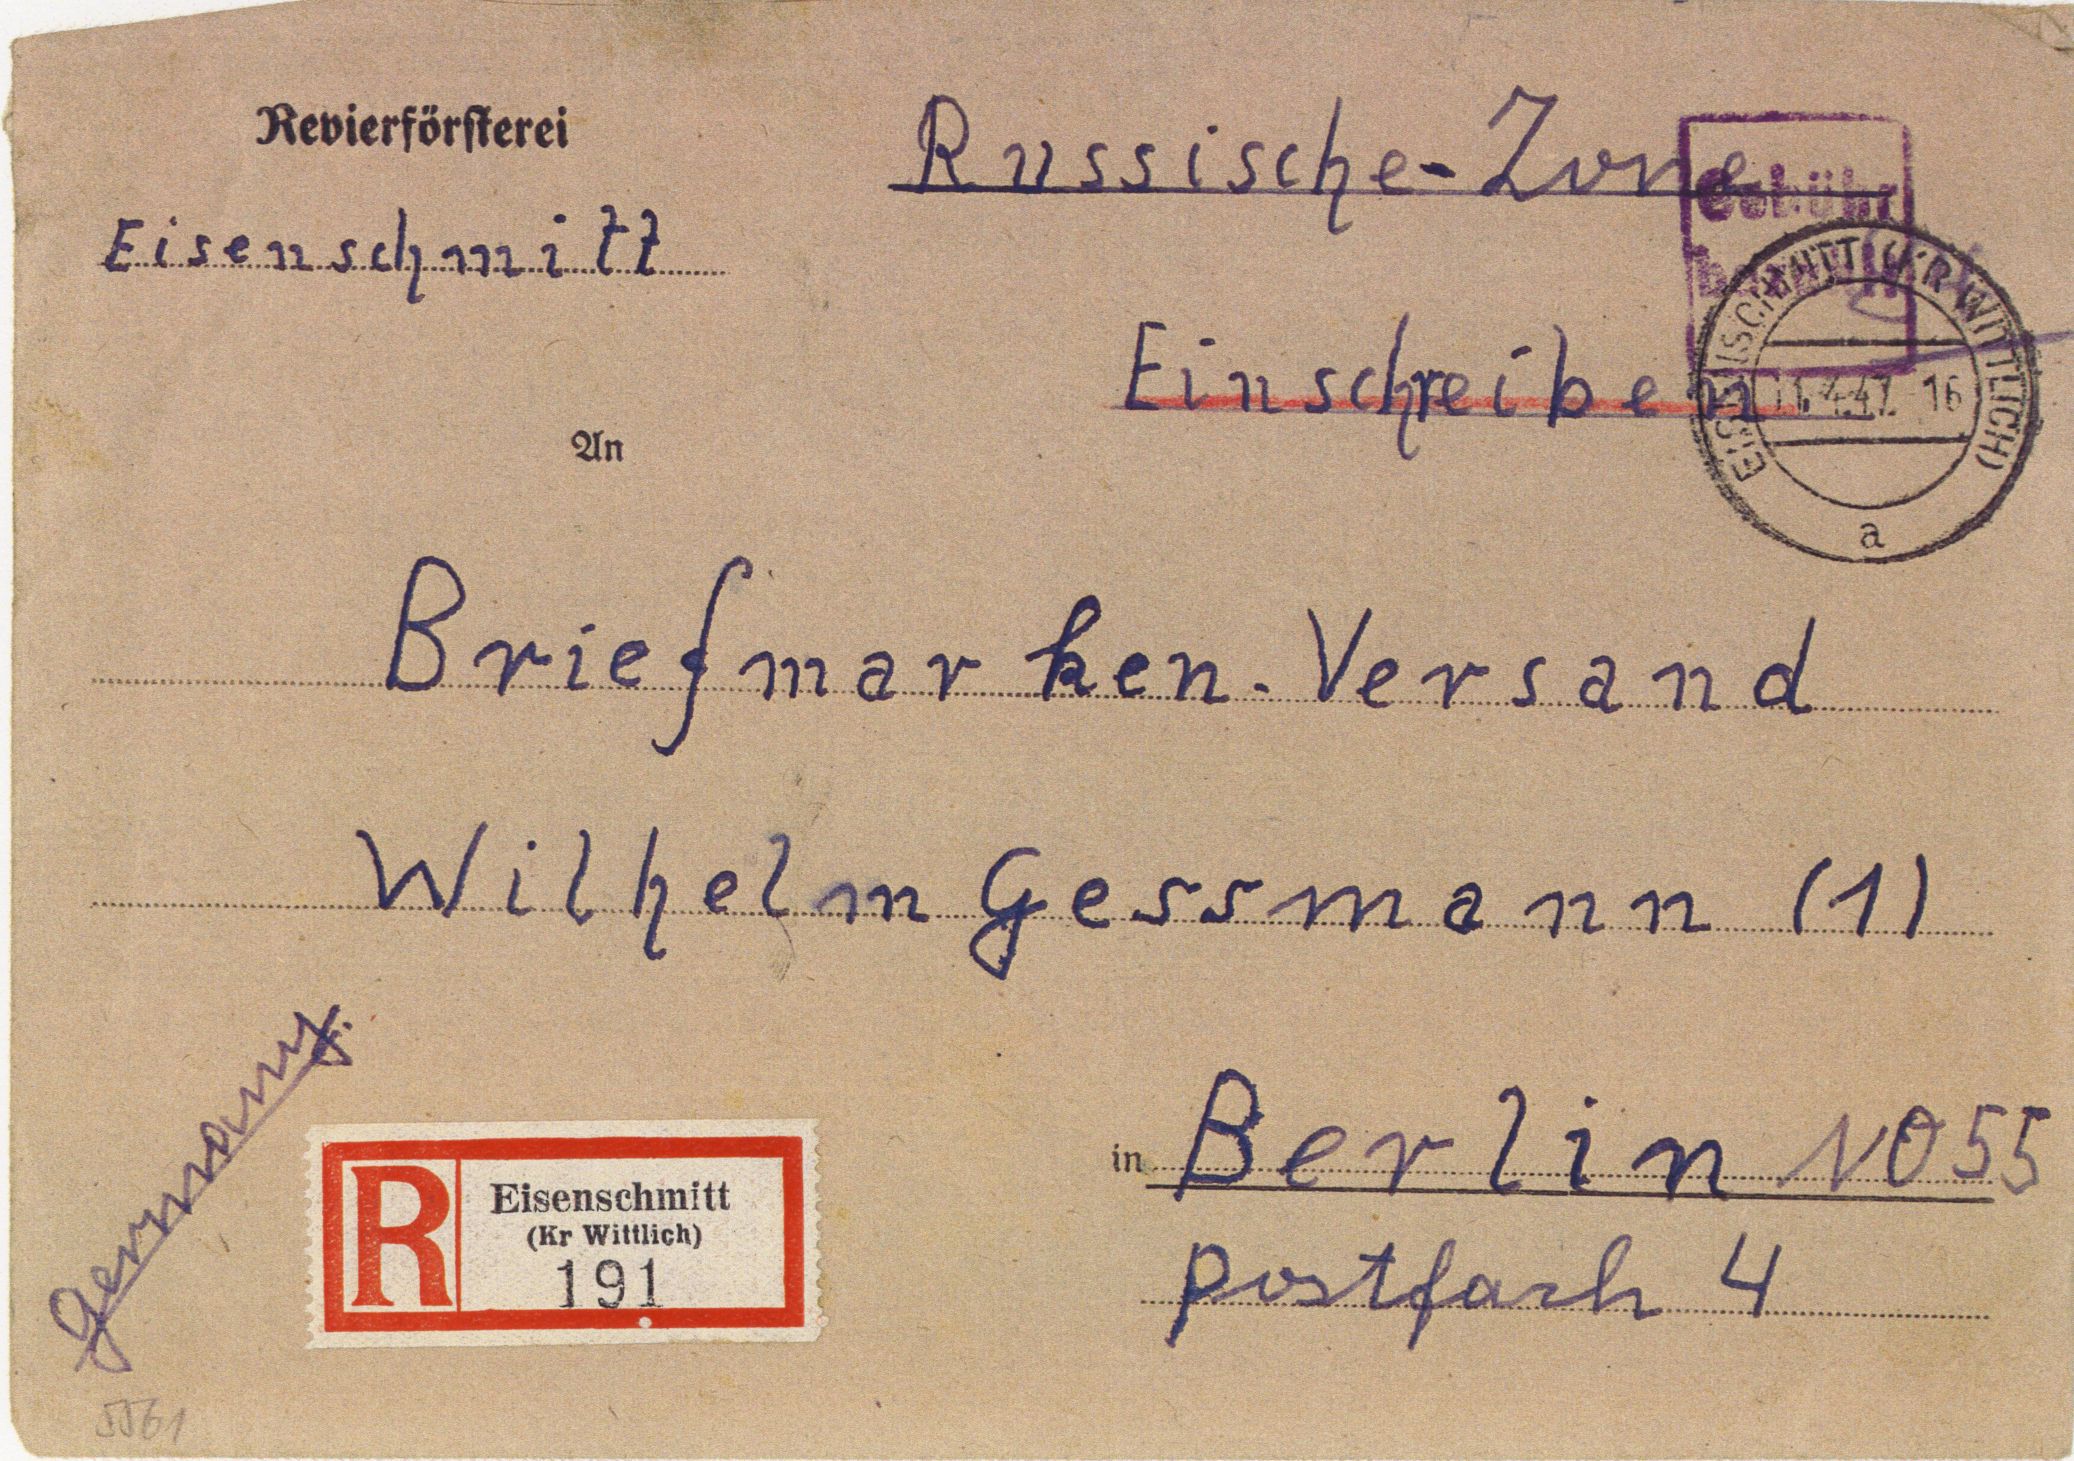 Revierförsterei
Eisenschmitt
Russische-Zone
Gebühr
bezahlt
Einschreiben
EISENSCHMITT (KR WITTLICH)
11.4.47. 16
a
An
Briefmarken-Versand
Wilhelm Gessmann (1)
Germany.
in Berlin NO55
Postfach 4
R Eisenschmitt
(Kr Wittlich)
191
5561